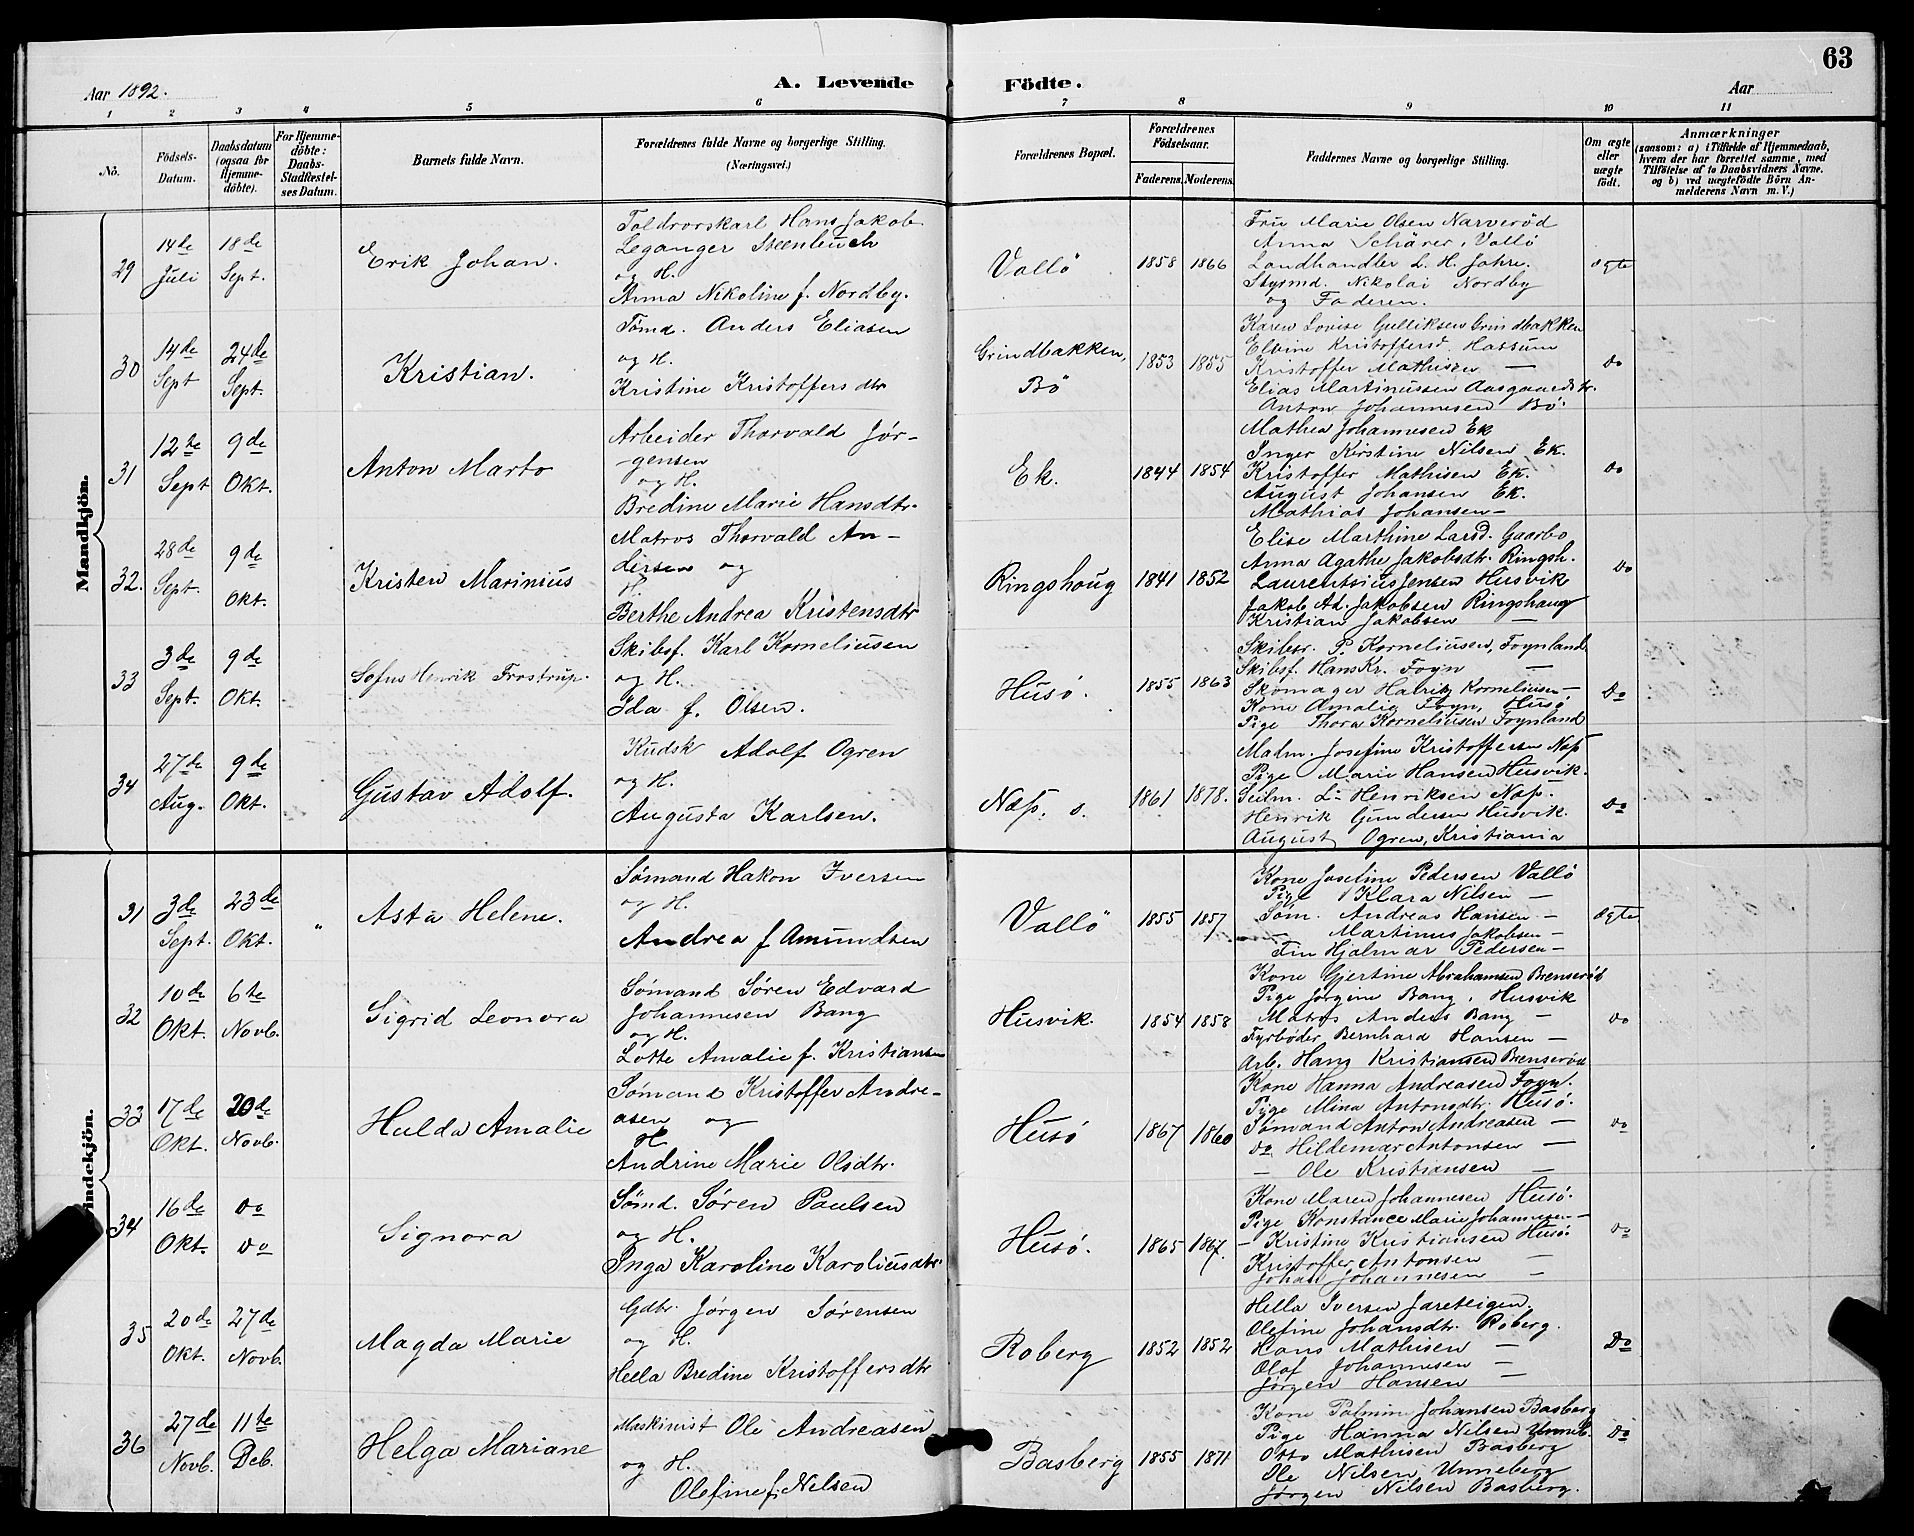 63
Aar 1892.
A. Levende Födte.
Aar
1 2 3 4 5 6 7 8 9 10 11
No.
Födsels-Datum.
Daabsdatum (ogsaa for Hjemme-döbte).
For Hjemme-döbte: Daabs-Stadfæstel-ses Datum.
Barnets fulde Navn.
Forældrenes fulde Navne og borgerlige Stilling. (Næringsvei.)
Forældrenes Bopæl.
Forældrenes Födselsaar.
Faderens. Moderens.
Faddernes Navne og borgerlige Stilling.
Om ægte eller uægte födt.
Anmærkninger
(saasom: a) i Tilfælde af Hjemmedaab, hvem der har forrettet samme, med Tilföielse af to Daabsvidners Navne, og b) ved uægtefödte Börn An-melderens Navn m. V.)
Mandkjön.
29
14de Juli
18de Sept.
Erik Johan.
Toldrorskarl Hans Jakob
Leganger Steenbuch
og H.
Anna Nikoline f. Nordby.
Vallö
1858 1866
Fru Marie Olsen Narverød
Anna Schärer, Vallö
Landhandler L. H. Jahre.
Styrmd. Nikolai Nordby
og Faderen.
ægte
30
14de Sept
24de Sept.
Kristian.
Tømd. Anders Eliasen
og H.
Kristine Kristoffersdtr
Grindbakken,
Bö
1853 1855
Karen Lovise Gulliksen Grindbakken
Elvine Kristoffersd. Hassum
Kristoffer Mathisen —
Elias Martinussen Aasgaardstr.
Anton Johannesen Bö.
do
31
12te Sept
9de Okt.
Anton Marto
Arbeider Thorvald Jör-
gensen
og H.
Bredine Marie Hansdtr.
Ek.
1844 1854
Mathea Johannesen Ek
Inger Kirstine Nilsen Ek.
Kristoffer Mathisen Ek.
August Johansen Ek.
Mathias Johansen —
do
32.
28de Sept.
9de Okt.
Kristen Marinius
Matros Thorvald An-
dersen og
H.
Berthe Andrea Kristensdtr
Ringshoug
1841 1852
Elise Marthine Larsd. Gaarbo
Anna Agathe Jakobsdtr. Ringsh.
Laurentsius Jensen Husvik
Jakob Ad. Jakobsen Ringshaug
Kristian Jakobsen —
do
33
3de Sept.
9de Okt.
Sofus Henrik Frostrup.
Skibsf. Karl Korneliusen
og H.
Ida f. Olsen.
Husö.
1855 1863
Skibsr. P. Korneliusen, Foynland
Skibsf. Hans Kr. Foyn —
Skomager Korneliusen —
Kone Amalie Foyn, Husö
Pige Thora Korneliusen Foynland
do
34
27de Aug.
9de Okt.
Gustav Adolf.
Kudsk Adolf Ogren
og H.
Augusta Karlsen.
Næss. s.
1861 1878.
Madm. Josefine Kristoffersen Næss
Pige Marie Hansen Husvik.
Seilm. L. Henriksen Næss.
Henrik Gundersen Husvik.
August Ogren, Kristiania
do
indekjön.
31
3de Sept.
23de Okt.
"
Asta Helene.
Sømand Hakon Iversen
og H.
Andrea f Amundsen
Vallö
1855 1857
Kone Josefine Pedersen Vallö
Pige Klara Nilsen —
Søm. Andreas Hansen —
— Martinus Jakobsen —
Fin Hjalmar Pedersen —
ægte
32
10de Okt.
6te Novb.
Sigrid Leonora
Sömand Søren Edvard
Johannesen Bang
og H.
Lotte Amalie f. Kristiansen
Husvik.
1854 1858
Kone Gjertine Abrahamsen Brenserød
Pige Jørgine Bang, Husvik
Matros Anders Bang —
Fyrbøder Bernhard Hansen —
Arb. Hans Kristiansen Brenserød
do
33
17de Okt.
20de Novb.
Hulda Amalie
Sømand Kristoffer Andre-
asen og
H.
Andrine Marie Olsdtr.
Husö
1867 1860
Kone Hanna Andreasen Foyn.
Pige Mina Antonsdtr. Husö.
Sömand Anton Andreasen —
do Hildemar Antonsen —
— Ole Kristiansen —
do
34
16de Okt.
do do
Signora
Sömd. Søren Paulsen
og H.
Inga Karoline Karoliusdtr
Husö.
1865 1867.
Kone Maren Johannesen Husö.
Pige Konstance Marie Johannesen —
— Kristine Kristiansen Husö.
Kristoffer Antonsen —
Johan Johannesen —
do
35
20de Okt.
27de Novb.
Magda Marie
Gdbr. Jørgen Sørensen
og H.
Hella Bredine Kristoffersdtr
Roberg
1852 1852
Hella Iversen Jareteigen,
Olefine Johansdtr. Roberg.
Hans Mathisen —
Olaf Johannesen —
Jørgen Hansen —
do
36
27de Novb.
11te Deb.
Helga Mariane
Maskinist Ole Andreasen
og H.
Olefine f. Nilsen
Basberg
1855 1871
Kone Palmine Johansen Basberg
Pige Hanna Nilsen Unneb.
Otto Mathisen Basberg
Ole Nilsen, Unneberg
Jørgen Nilsen Basberg.
do